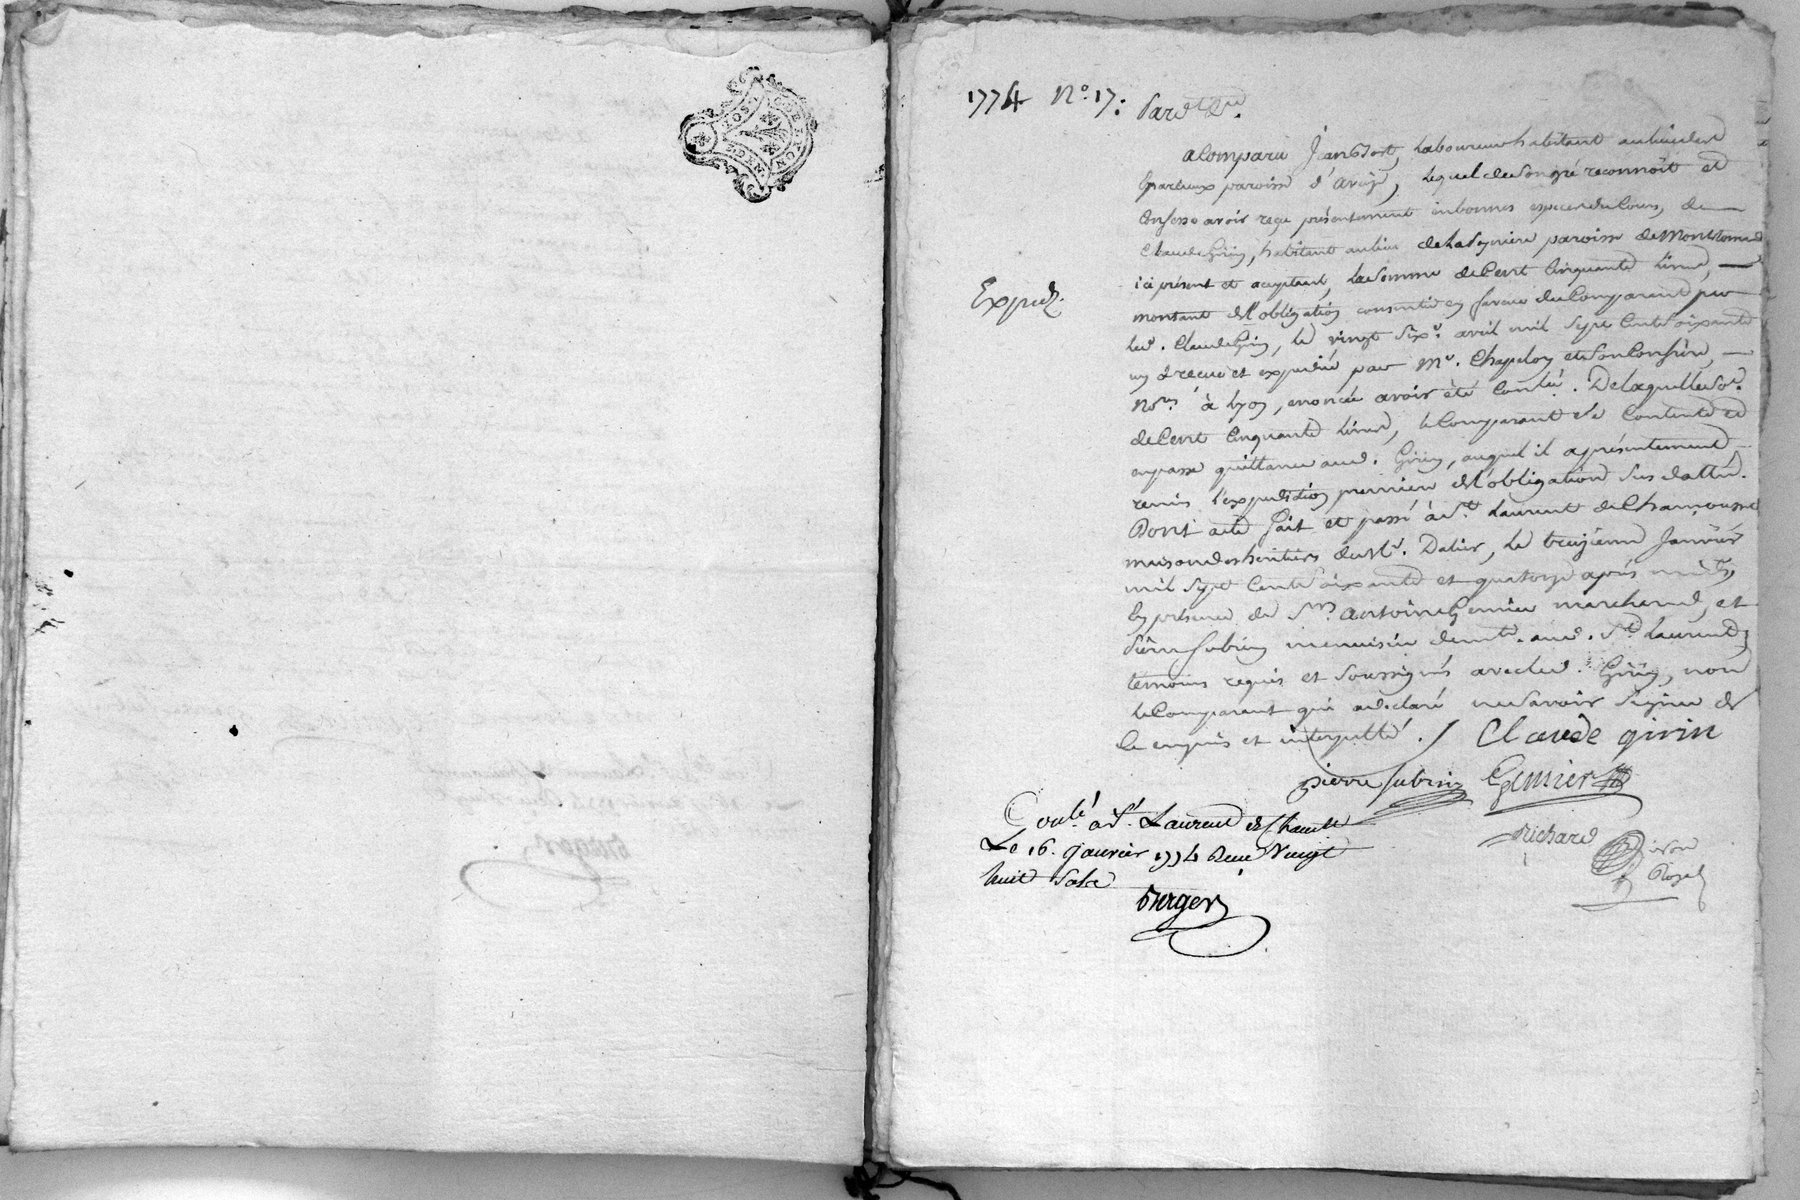 GEN. DE LYON
1774 N.º 17: Pard.t
a Comparu Jean , Laboureur habitant au lieu des
paroisse d'aveize, lequel de son gré reconnoit et
Confesse avoir reçu présentement en bonnes especes de Cours, de
Claude Girin, habitant au lieu de la paroisse de Montromand
ici présent et acceptant, la Somme de Cent Cinquante livres,
Expéd.
montant de l'obligation consentie en faveur du Comparant par
led. Claude Girin, le vingt Six avril mil Sept Cent Soixante
recue et expediée par Me. Chapelon et Son Confrère,
Nores. à Lyon, enoncée avoir été Conlée. De laquelle Some.
de Cent Cinquante livres, le Comparant Se Contente et
en passe quittance aud. Girin, auquel il a présentement
remis l'expedition premiere de l'obligation Sus dattée.
Dont acte fait et passé à St. Laurent de Chamousset
maison des heritiers du Sr. Dalier, le treizieme Janvier
mil Sept Cent Soixante et quatorze après midi,
En présence de Srs. antoine Genier marchand, et
Pierre Subrin menuisier demts. aud. St. Laurent,
temoins requis et Soussignés avec led. Girin, non
le Comparant qui a declaré ne Savoir Signer de
Ce enquis et interpellé. /. Claude girin
pierre Subrin Genier
Richard
Conlé. a St. Laurent de Cham.t
Le 16. janvier 1774 Reçu Vingt
huit Sols
Berger